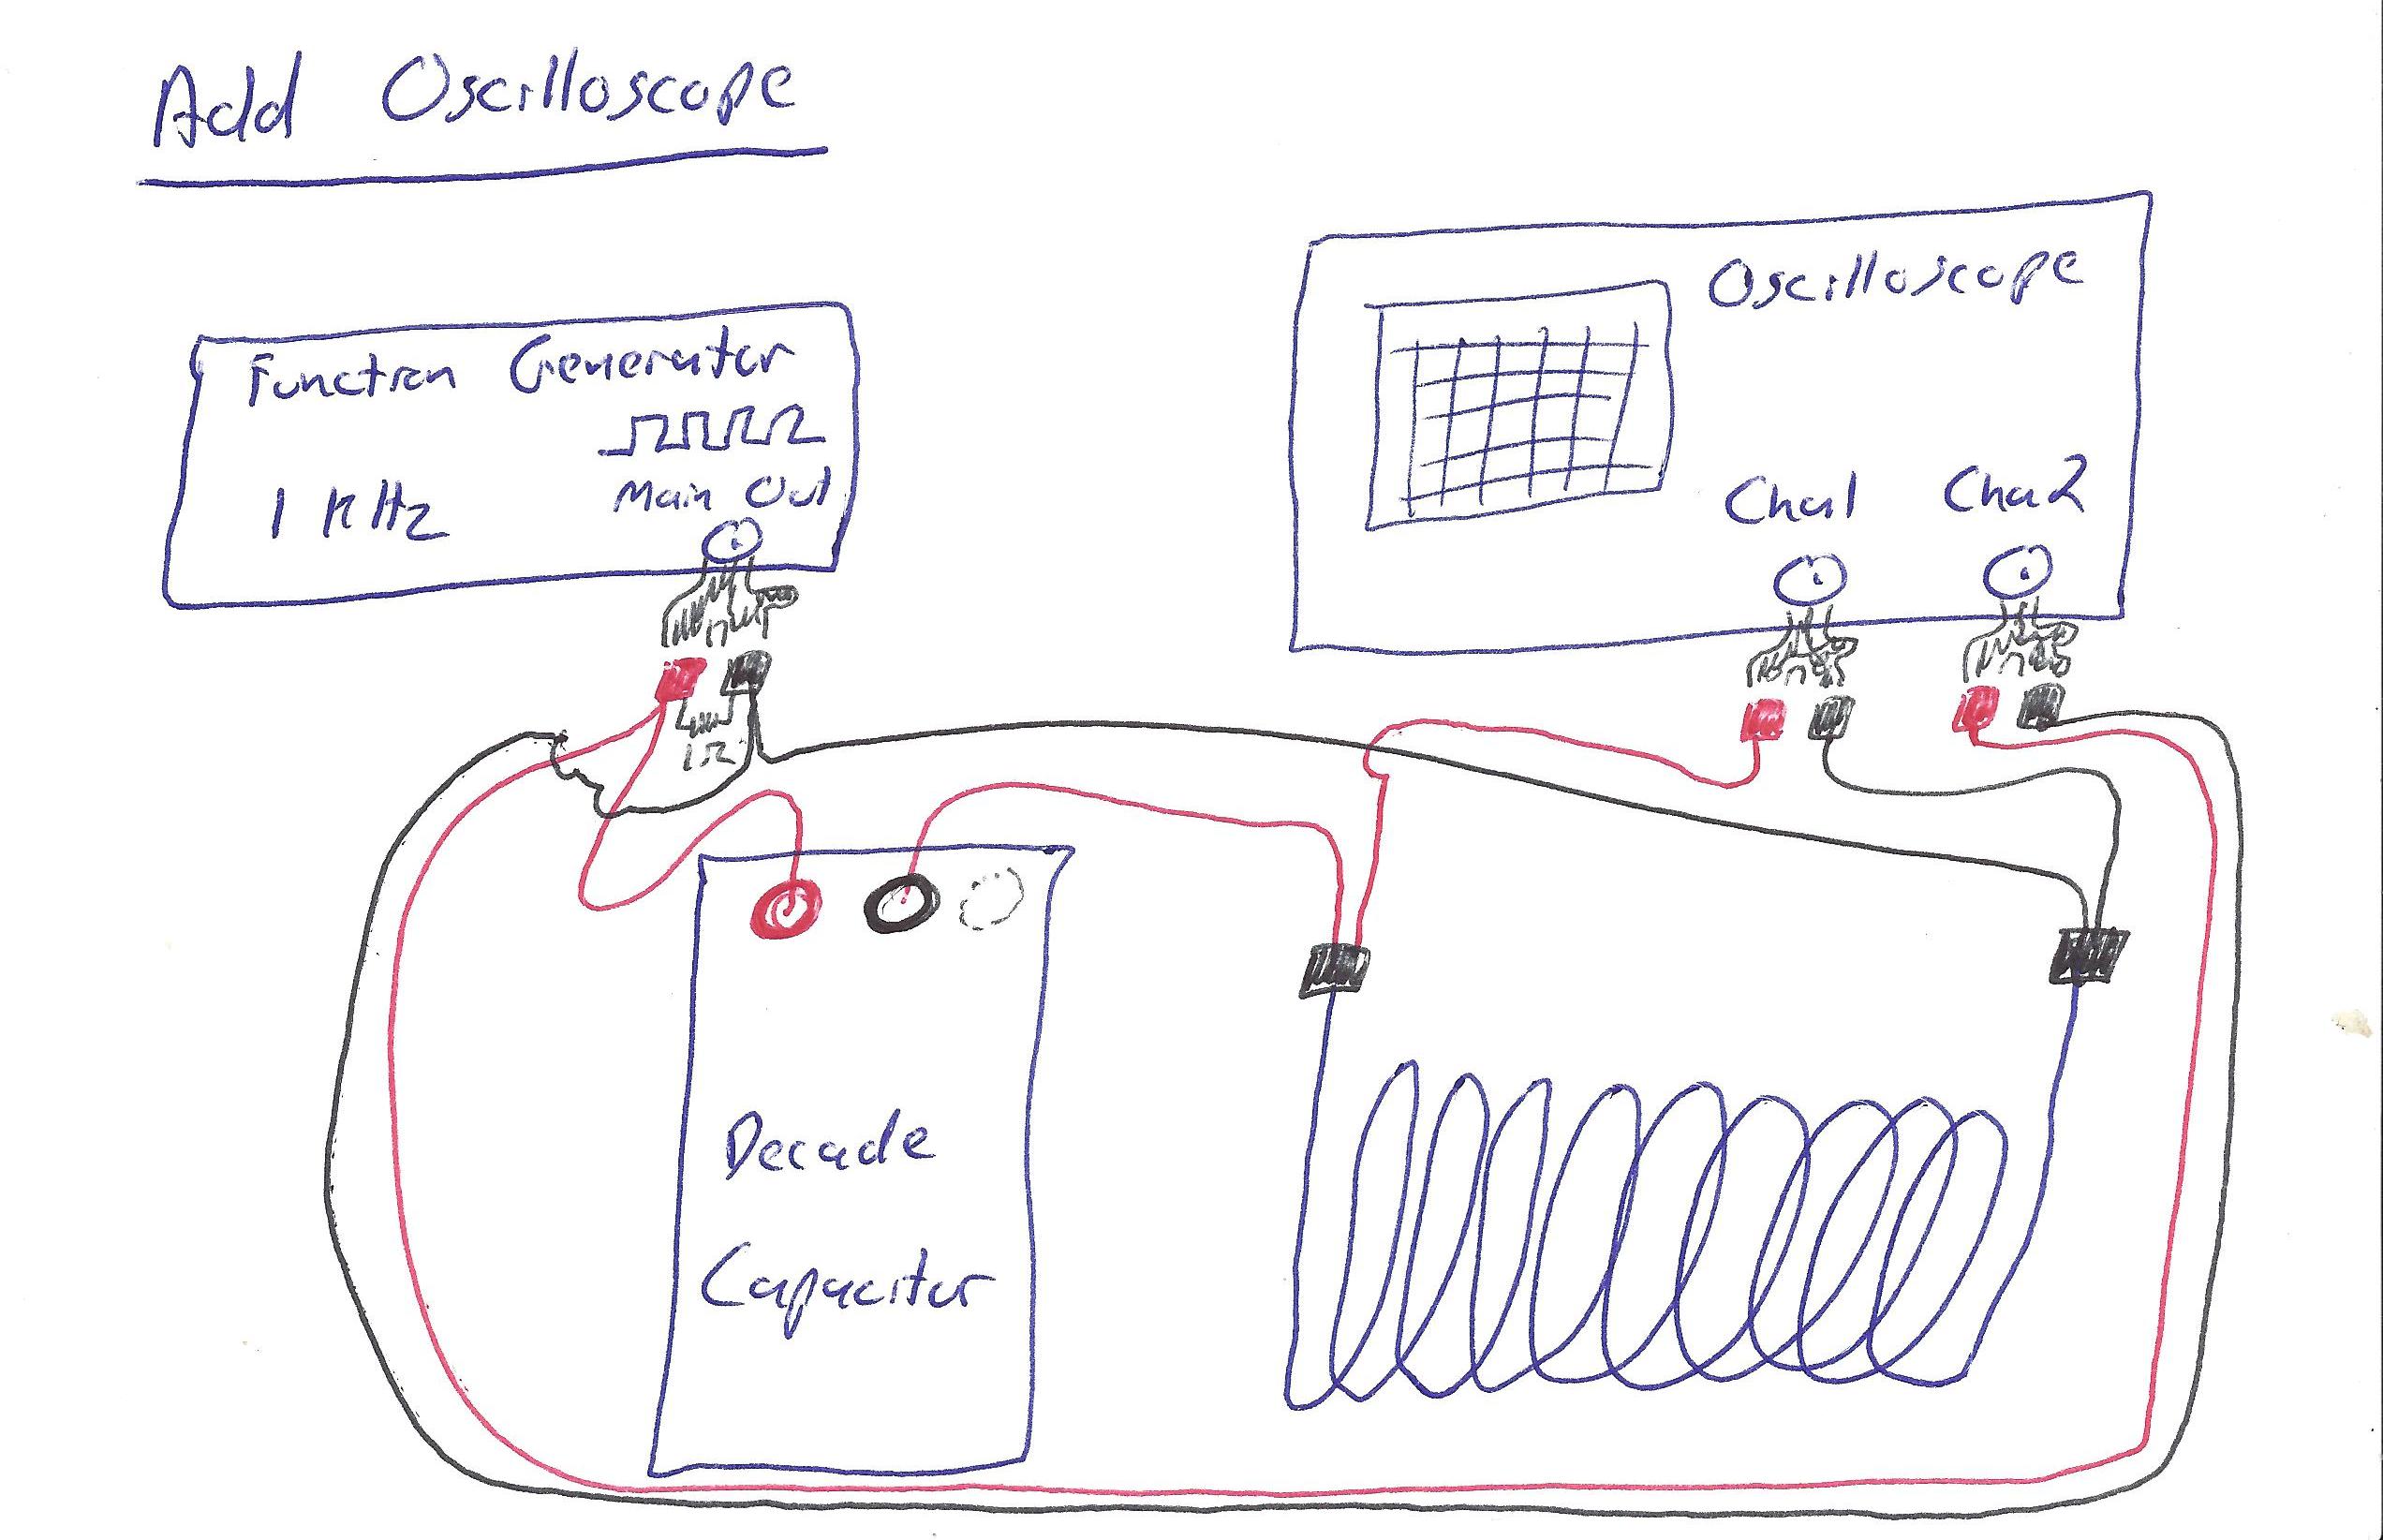 Add Oscilloscope
Function Generator
1 KHz
Main Out
Oscilloscope
Cha1
Cha2
1Ω
Decade
Capacitor